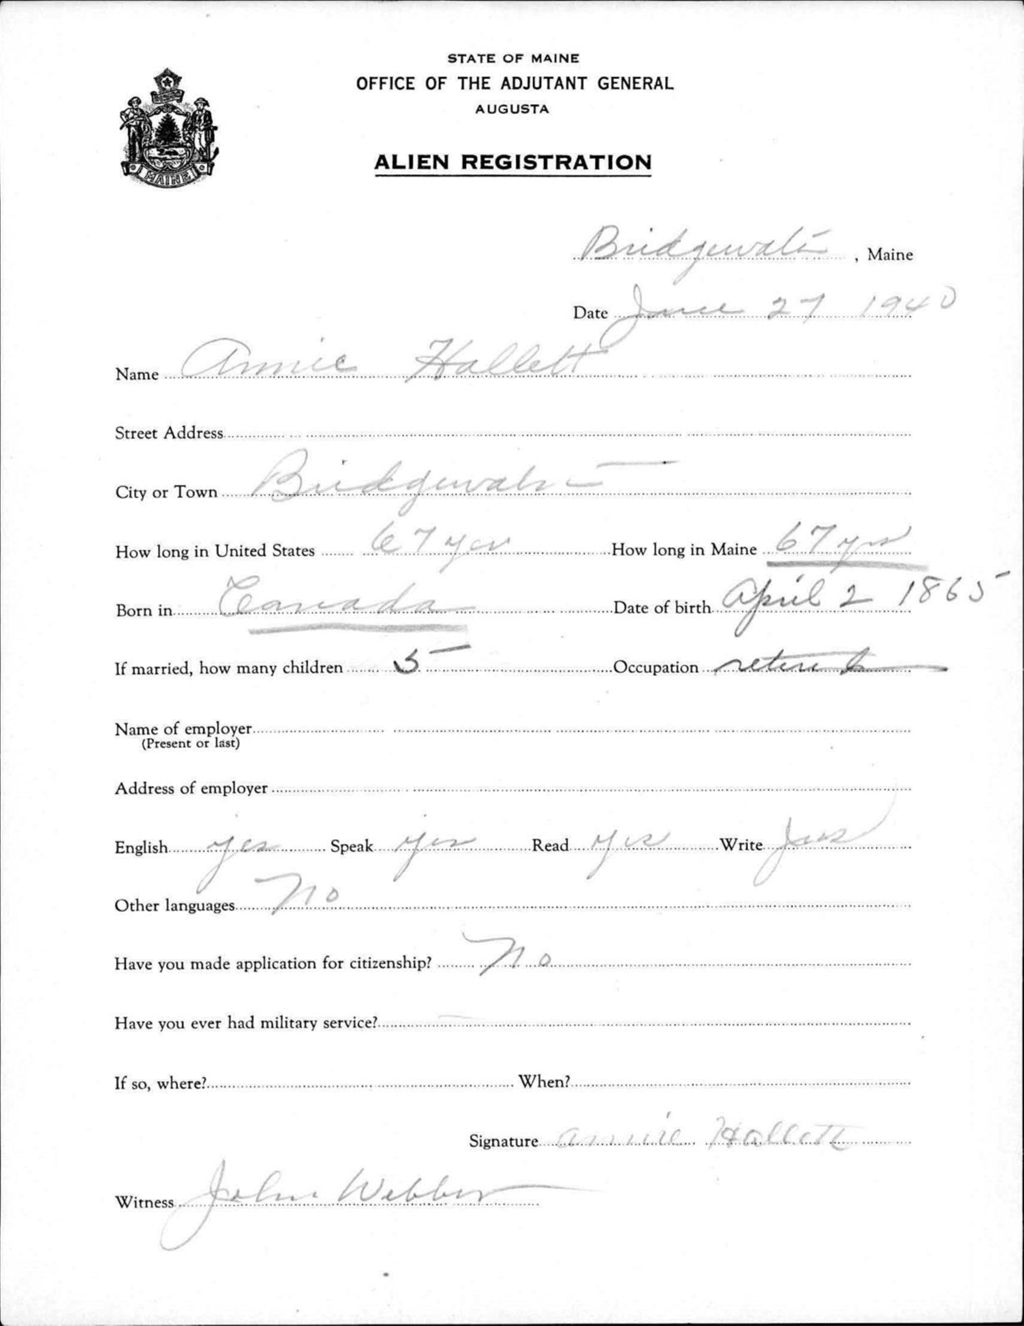 STATE OF MAINE
OFFICE OF THE ADJUTANT GENERAL
AUGUSTA
ALIEN REGISTRATION
MAINE
Bridgewater, Maine
Date June 27 1940
Name Annie Hallett
Street Address
City or Town Bridgewater
How long in United States 67 yrs How long in Maine 67 yrs
Born in Canada Date of birth April 2 1865
If married, how many children 5 Occupation retired
Name of employer
(Present or last)
Address of employer
English yes Speak yes Read yes Write yes
Other languages No
Have you made application for citizenship? No
Have you ever had military service?
If so, where? When?
Signature Annie Hallett
Witness John Webber